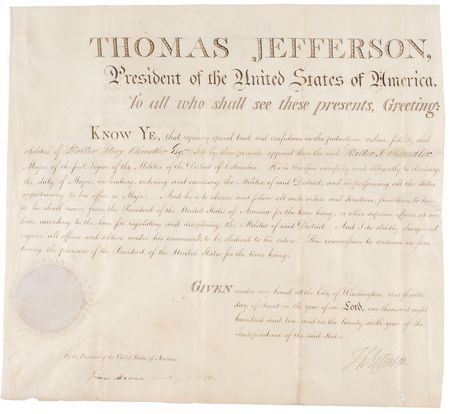 THOMAS JEFFERSON,
President of the United States of America.
To all who shall see these presents, Greeting:
KNOW YE, that reposing special trust and confidence in the patriotism, valour, fidelity and
abilities of Walter Story Chandler Esqr. I do by these presents appoint him the said Walter S. Chandler
Major of the first legion of the Militia of the District of Columbia. He is therefore carefully and diligently to discharge
the duty of Major, by ordering and exercising the Militia of said District, and in performing all the duties
appertaining to his office as Major. And he is to observe and follow all such orders and directions, from time to time,
as he shall receive from the President of the United States of America for the time being, or other superior officers set over
him, according to the law for regulating and disciplining the Militia of said District. And I do strictly charge and
require all officers and soldiers under his command to be obedient to his orders. This commission to continue in force
during the pleasure of the President of the United States for the time being.
GIVEN under my hand at the City of Washington, this
day of in the year of our Lord, one thousand eight
hundred and two, and in the twenty sixth year of the
Independence of the said States.
Th Jefferson
By the President of the United States of America,
James Madison Secretary of State